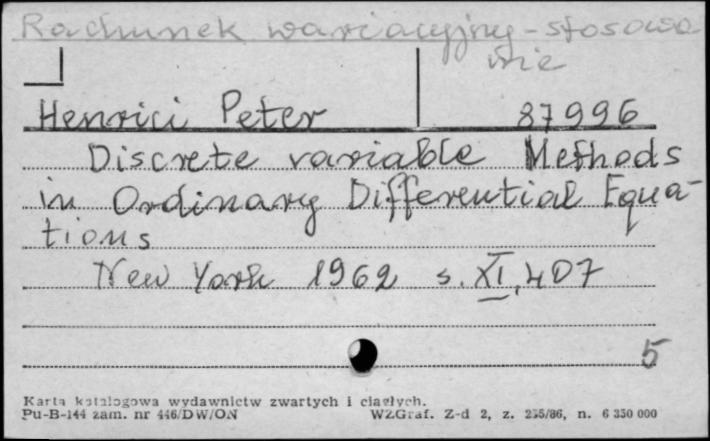 Rachunek wariacyjny - stosowa
nie
Henrici Peter 87996
Discrete variable Methods
in Ordinary Differential Equa-
tions
New York 1962 s. XI, 407
5
Karta katalogowa wydawnictw zwartych i ciągłych.
Pu-B-144 zam. nr 446/DW/ON WZGraf. Z-d 2, z. 255/86, n. 6 350 000